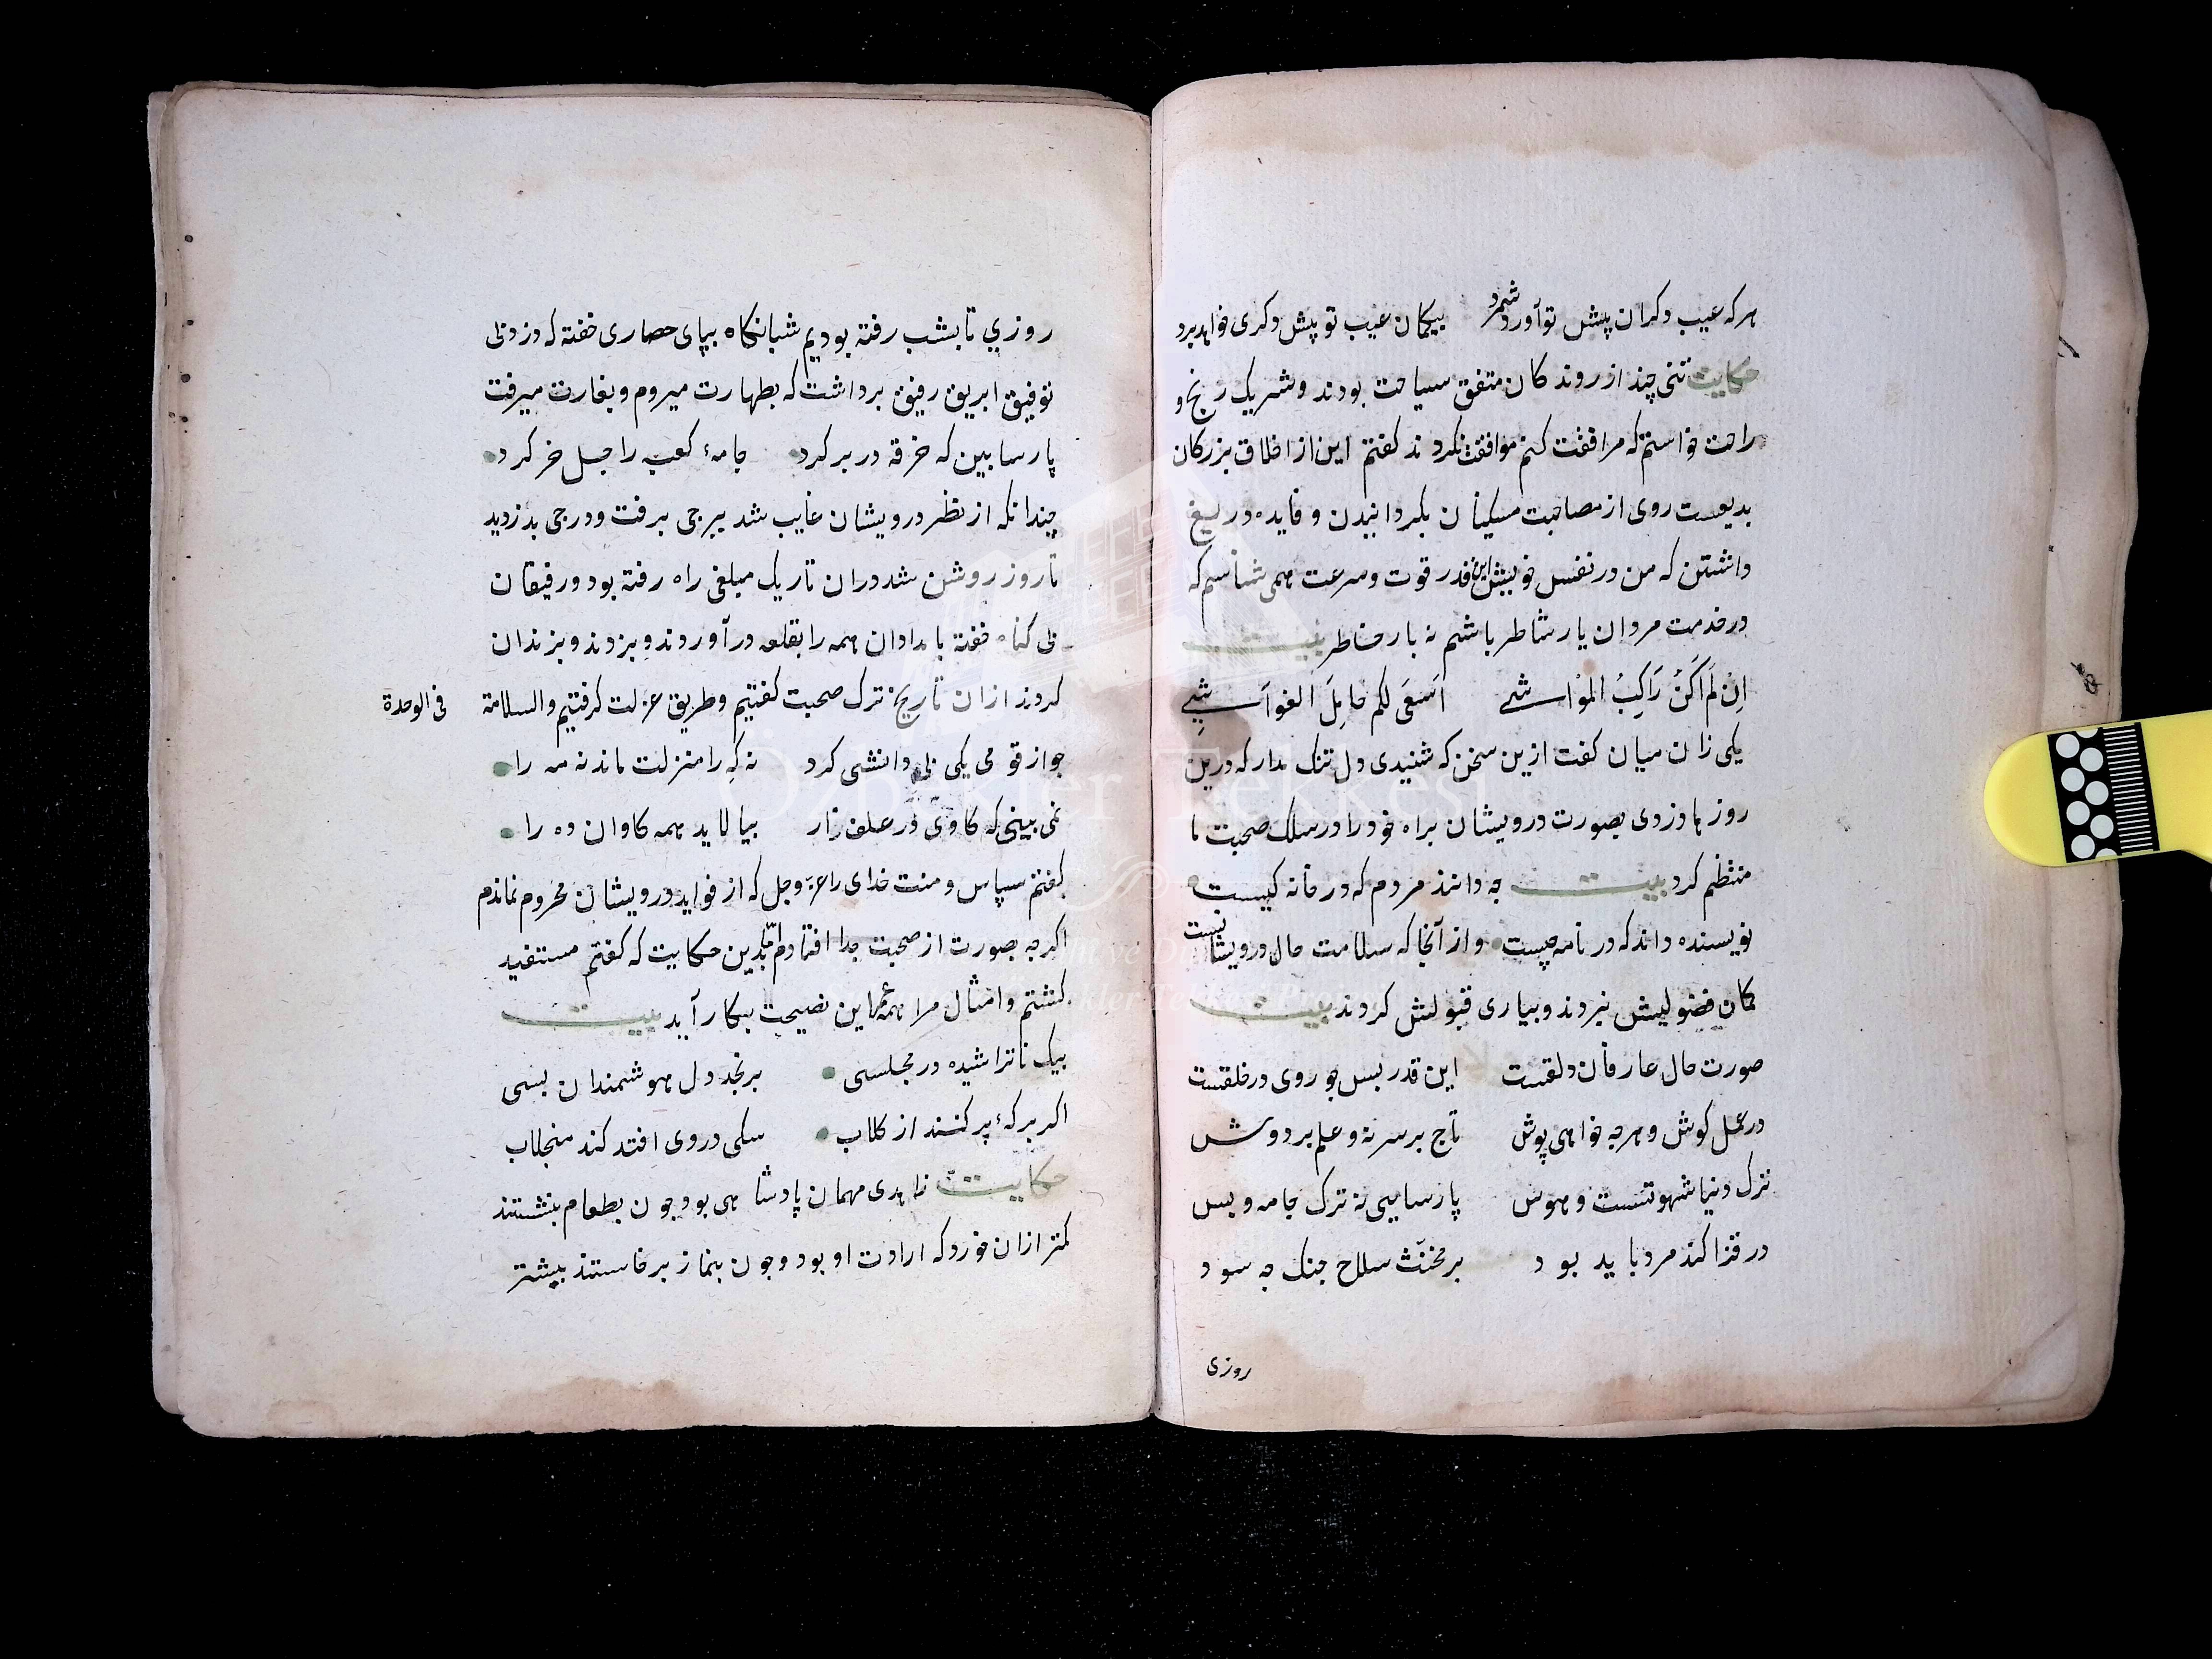 هرکه عیب دکران پیش تو آورد و شمرد بیکمان عیب تو پیش دکری خواهد برد
حکایت تنی چند از روندکان متفق سیاحت بودند و شریک رنج و
راحت خواستم که مرافقت کنم موافقت نکردند کفتم این از اخلاق بزرکان
بدیعست روی از مصاحبت مسکینان بکردانیدن و فایده دریغ
داشتن که من در نفس خویش این قدر قوت و سرعت همی شناسم که
در خدمت مردان یار شاطر باشم نه بار خاطر بیت
اِن لَم اَکُنْ رَاکِبُ المَوَاشی اَسعَی لکم حَامِلَ الغوَاشِیِ
یکی زان میان کفت ازین سخن که شنیدی دل تنک مدار که درین
روزها دزدی بصورت درویشان براه خود را در سلک صحبت ما
منتظم کرد بیت چه دانند مردم که در خانه کیست
نویسنده داند که در نامه چیست و از آنجا که سلامت حال درویشانست
کمان فضولیش نبردند و بیاری قبولش کردند بیت
صورت حال عارفان دلقست این قدر بس چو روی در خلقست
در عمل کوش و هرچه خواهی پوش تاج بر سر نه و علم بر دوش
ترک دنیا شهوتست و هوس پارسایی نه ترک جامه و بس
در قزاکند مرد باید بود بر مخنّث سلاح جنک چه سود
روزی
روزي تا بشب رفته بودیم شبانکاه بپای حصاری خفته که دزد بی
توفیق ابریق رفیق برداشت که بطهارت میروم و بغارت میرفت
پارسا بین که خرقه در بر کرد جامهٔ کعبه را جل خر کرد
چندانکه از نظر درویشان غایب شد ببرجی برفت و درجی بدزدید
تا روز روشن شد دران تاریک مبلغی راه رفته بود و رفیقان
بی کناه خفته بامدادان همه را بقلعه در آوردند و بزدند و بزندان
کردند ازان تاریخ ترک صحبت کفتیم و طریق عزلت کرفتیم والسلامة
فی الوحدة
چو از قومی یکی بی دانشی کرد نه کِه را منزلت ماند نه مه را
نمی بینی که کاوی در علف زار بیالاید همه کاوان ده را
کفتم سپاس و منت خدای را عزّ وجل که از فواید درویشان محروم نماندم
اکرچه بصورت از صحبت جدا افتادم امّا بدین حکایت که کفتم مستفید
کشتم و امثال مرا همه عمر این نصیحت بکار آید بیت
بیک ناتراشیده در مجلسی برنجد دل هوشمندان بسی
اکر برکهٔ پر کنند از کلاب سکی در وی افتد کند منجلاب
حکایت زاهدی مهمان پادشاهی بود چون بطعام بنشستند
کمتر ازان خورد که ارادت او بود و چون بنماز برخاستند بیشتر
Özbekler Tekkesi